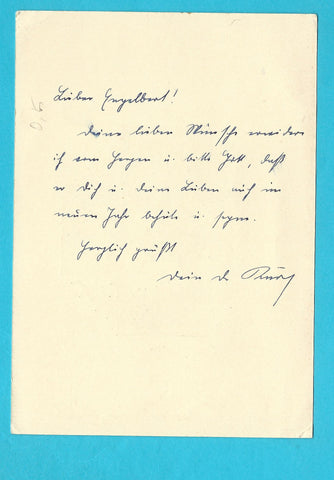 Lieber Engelbert!
Deine lieben Wünsche erwidere
ich vom Herzen u. bitte Gott, daß
er Dich u. deine Lieben auch im
neuen Jahr behüte u. segne.
Herzlich grüßt
Dein
0,5